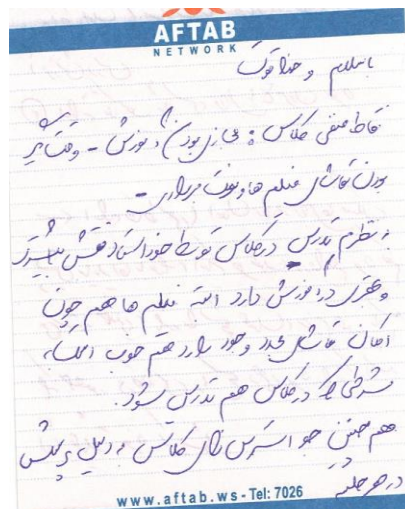 AFTAB
NETWORK
باسلام و خدا قوت
نقاط منفی کلاس: مجازی بودن آموزش - وقت گیر
بودن تماشای فیلم ها و نوت برداری -
به نظرم تدریس در کلاس توسط خود استاد نقش بیشتر
و بهتری در آموزش دارد البته فیلم ها هم چون
امکان تماشای مجدد وجود دارد هم خوب است،
به شرطی که در کلاس هم تدریس شود.
هم چنین جو استرس زای کلاس به دلیل پرسش
در هر جلسه
www.aftab.ws - Tel: 7026